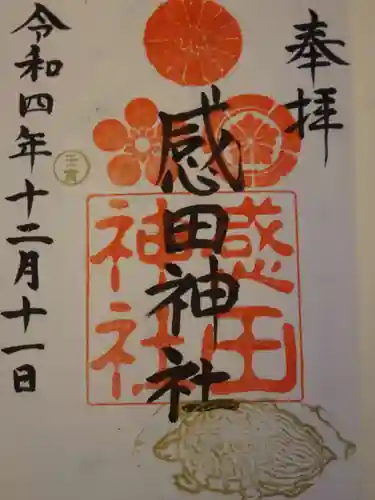 奉拝
感田神社
感田神社
令和四年十二月十一日
壬寅